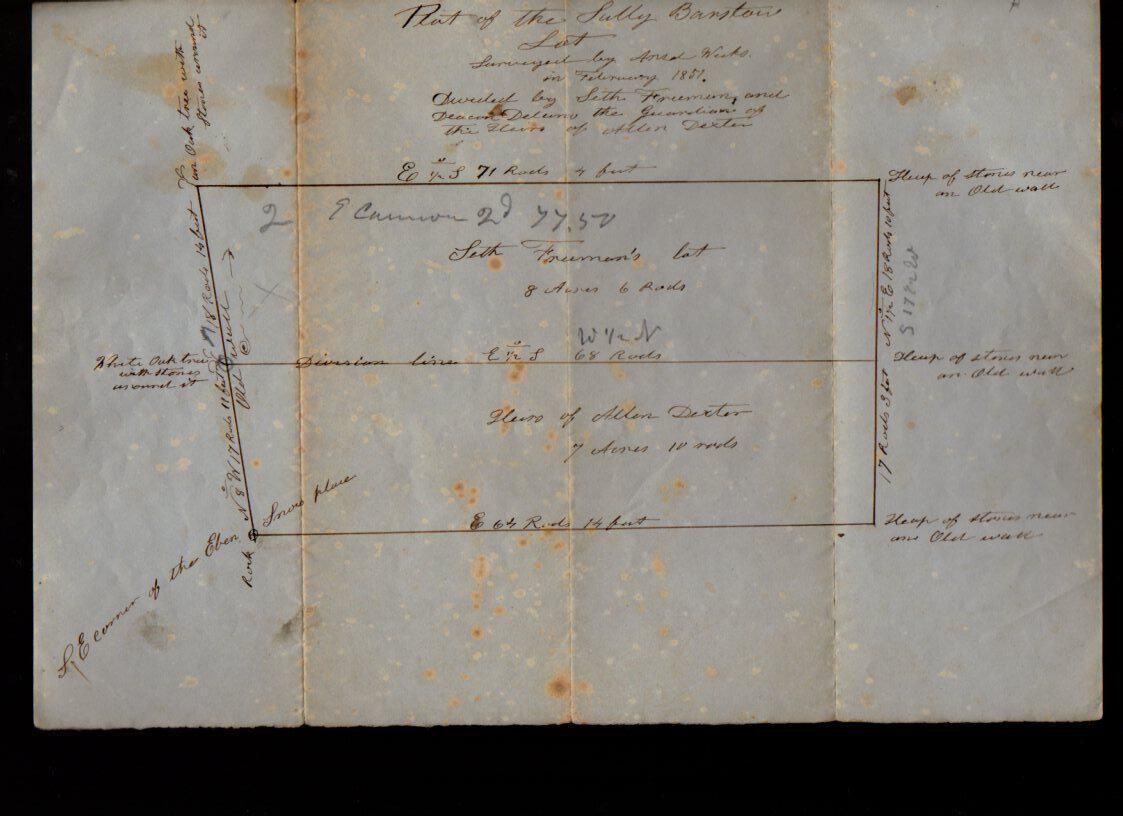 Plat of the Sally Barstow
Lot
Surveyed by Ansel Weeks.
in February 1851.
Divided by Seth Freeman, and
Deacon Delano the Guardian of
the Heirs of Allen Dexter
an Oak tree with
Stones around it
E ½° S 71 Rods 4 feet
Heap of stones near
an Old wall
2 E Cannon 2d 77.50
Seth Freeman's lot
8 Acres 6 Rods
18 Rods 14 feet
N ½° E 18 Rods 10 feet
S 17 W
W ½ N
White Oak tree
with stones
around it
Division line E ½° S 68 Rods
Heap of stones near
an Old wall
Heirs of Allen Dexter
7 Acres 10 rods
N 8° W 17 Rods 11 feet
17 Rods 3 feet
E 64 Rods 14 feet
Heap of stones near
an Old wall
Rock
S, E corner of the Eben Snow place